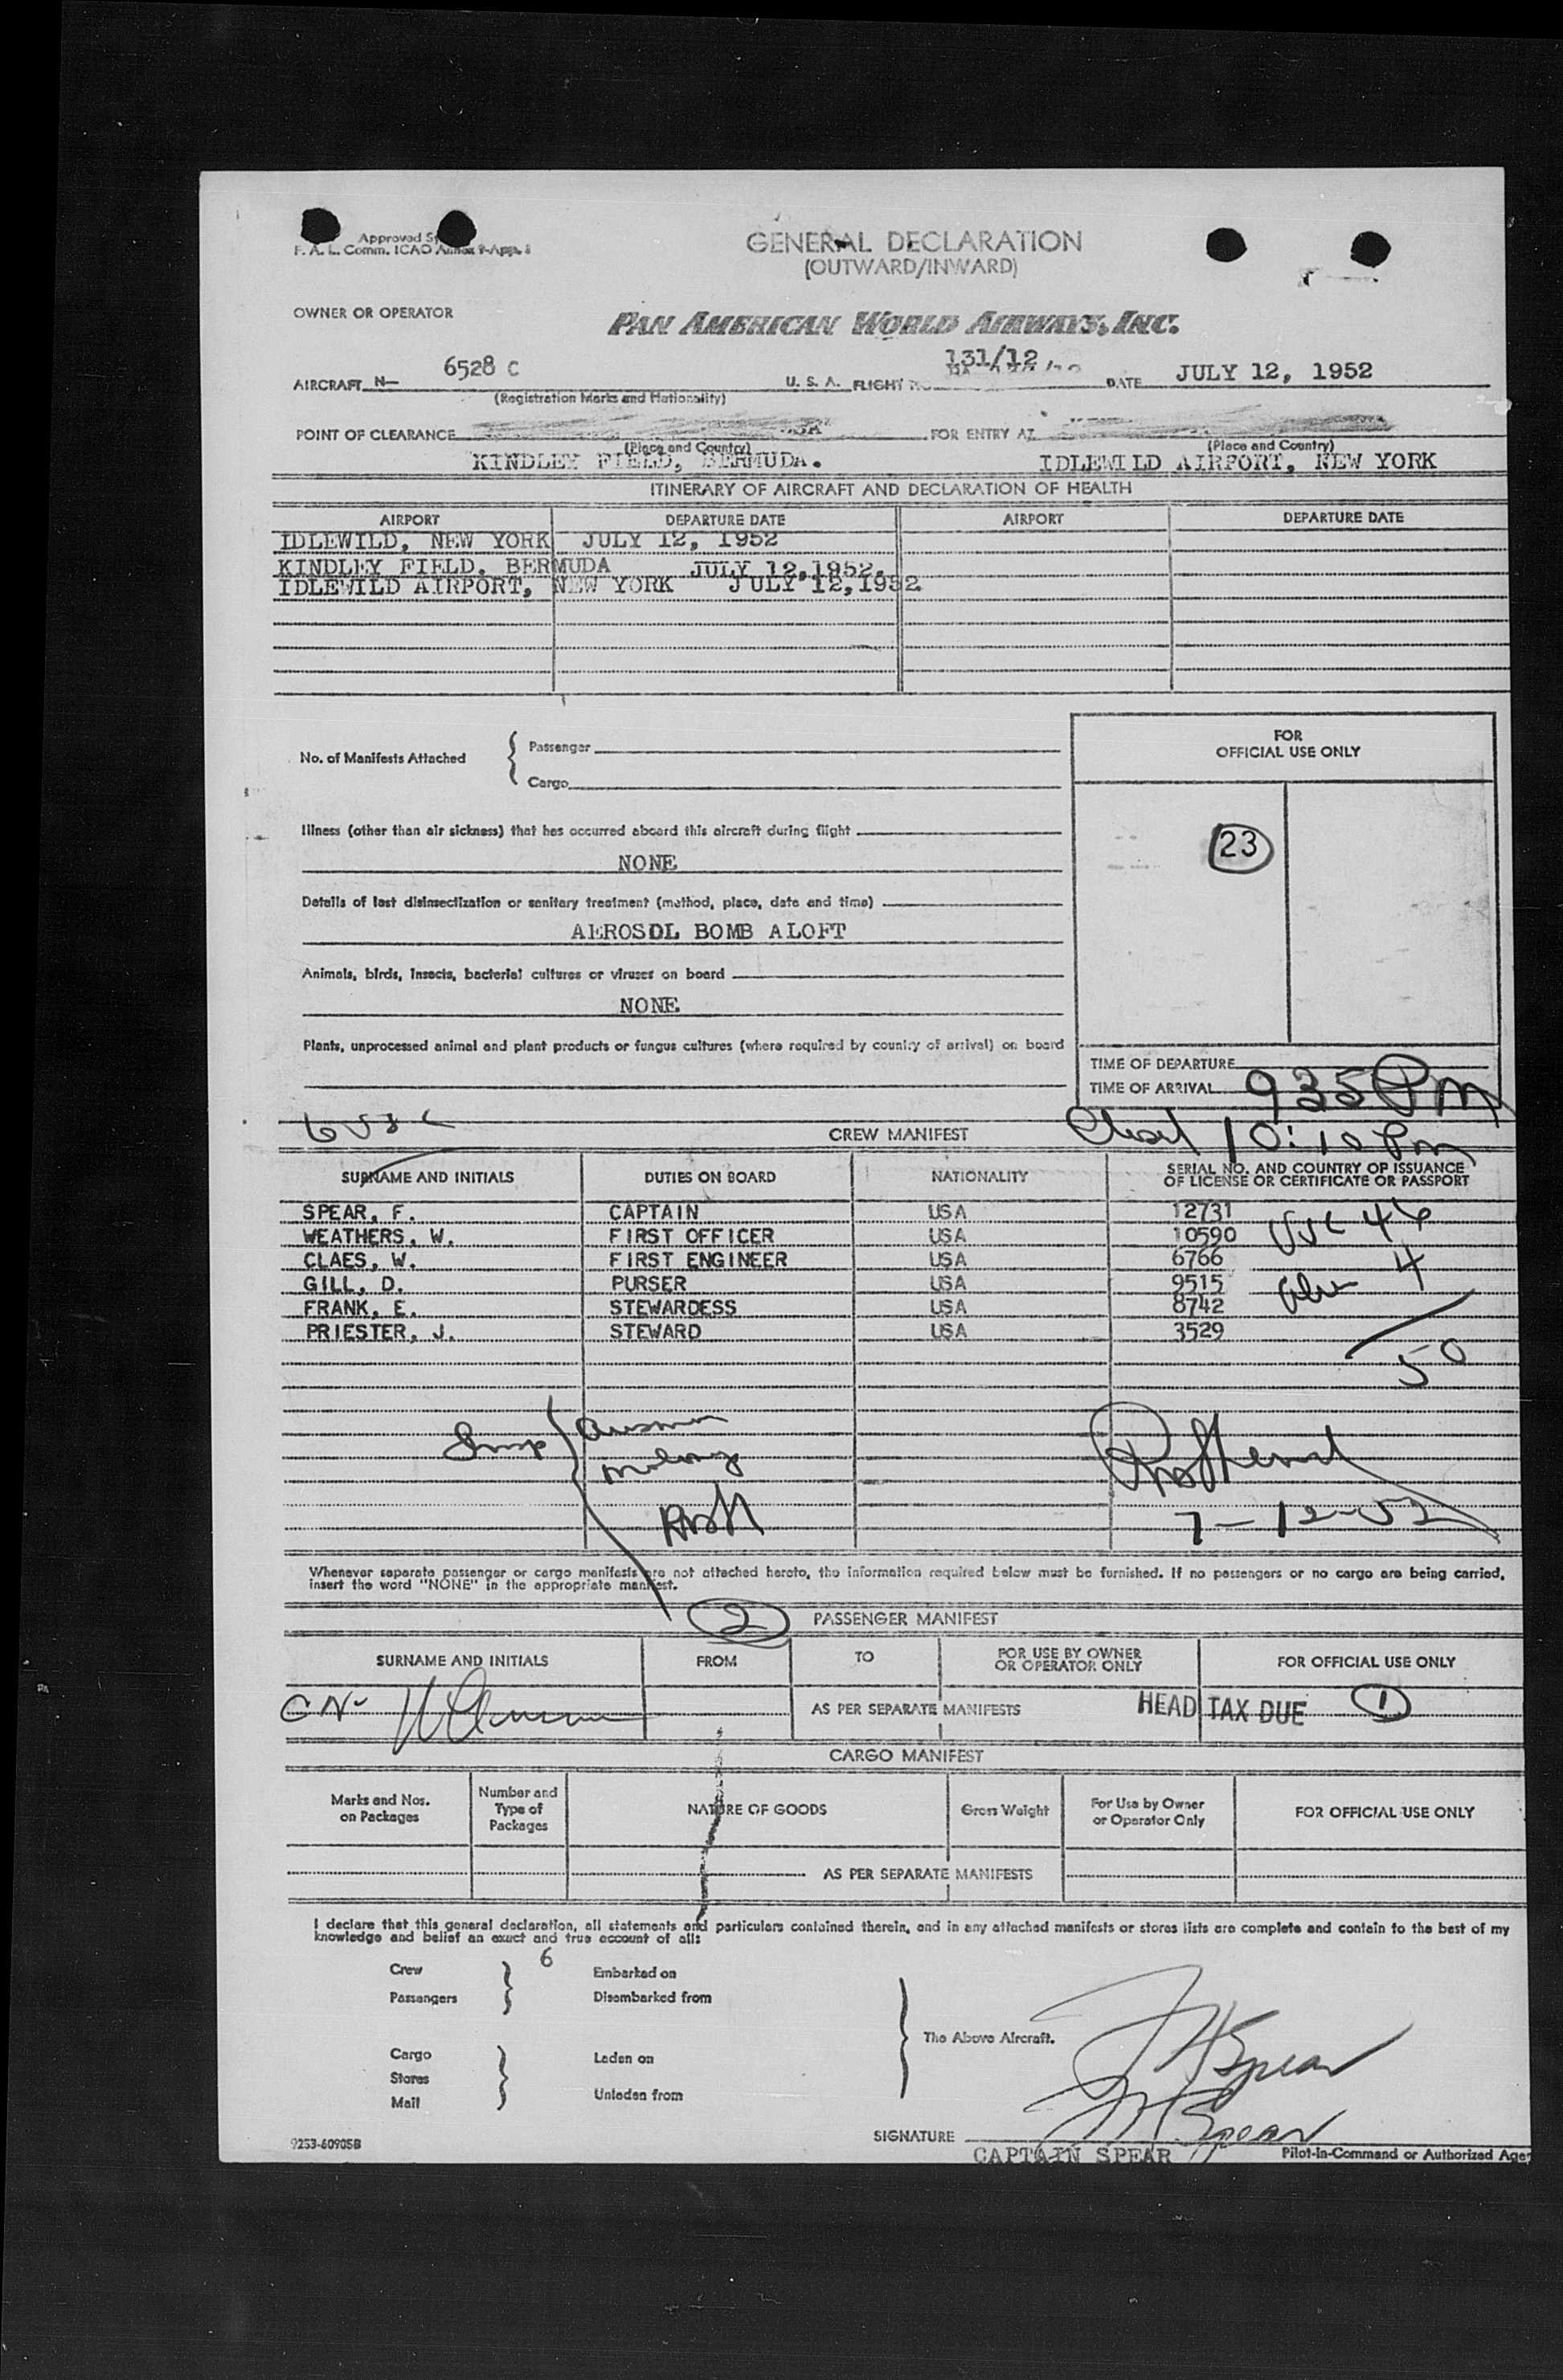 Approved
F. A. L. Comm. ICAO Annex 9-App. 1
GENERAL DECLARATION
(OUTWARD/INWARD)
OWNER OR OPERATOR
PAN AMERICAN WORLD AIRWAYS, INC.
AIRCRAFT N- 6528 C U. S. A. FLIGHT 131/12 DATE JULY 12, 1952
(Registration Marks and Nationality)
POINT OF CLEARANCE FOR ENTRY AT
(Place and Country) (Place and Country)
KINDLEY FIELD, BERMUDA. IDLEWILD AIRPORT, NEW YORK
ITINERARY OF AIRCRAFT AND DECLARATION OF HEALTH
AIRPORT DEPARTURE DATE AIRPORT DEPARTURE DATE
IDLEWILD, NEW YORK JULY 12, 1952
KINDLEY FIELD. BERMUDA JULY 12,1952.
IDLEWILD AIRPORT, NEW YORK JULY 12,1952
FOR
OFFICIAL USE ONLY
No. of Manifests Attached
Passenger
Cargo
Illness (other than air sickness) that has occurred aboard this aircraft during flight
23
NONE
Details of last disinsectization or sanitary treatment (method, place, date and time)
AEROSOL BOMB ALOFT
Animals, birds, insects, bacterial cultures or viruses on board
NONE
Plants, unprocessed animal and plant products or fungus cultures (where required by country of arrival) on board
TIME OF DEPARTURE
TIME OF ARRIVAL 935 PM
CREW MANIFEST 10:10 Pm
SURNAME AND INITIALS DUTIES ON BOARD NATIONALITY SERIAL NO. AND COUNTRY OF ISSUANCE
OF LICENSE OR CERTIFICATE OR PASSPORT
SPEAR, F. CAPTAIN USA 12731
WEATHERS, W. FIRST OFFICER USA 10590 46
CLAES, W. FIRST ENGINEER USA 6766
GILL, D. PURSER USA 9515 4
FRANK, E. STEWARDESS USA 8742
PRIESTER, J. STEWARD USA 3529
50
7-12-52
Whenever separate passenger or cargo manifests are not attached hereto, the information required below must be furnished. If no passengers or no cargo are being carried,
insert the word "NONE" in the appropriate manifest.
2 PASSENGER MANIFEST
SURNAME AND INITIALS FROM TO FOR USE BY OWNER
OR OPERATOR ONLY FOR OFFICIAL USE ONLY
AS PER SEPARATE MANIFESTS HEAD TAX DUE 1
CARGO MANIFEST
Marks and Nos.
on Packages
Number and
Type of
Packages
NATURE OF GOODS
Gross Weight
For Use by Owner
or Operator Only
FOR OFFICIAL USE ONLY
AS PER SEPARATE MANIFESTS
I declare that this general declaration, all statements and particulars contained therein, and in any attached manifests or stores lists are complete and contain to the best of my
knowledge and belief an exact and true account of all:
Crew 6 Embarked on
Passengers Disembarked from
The Above Aircraft.
Cargo Laden on
Stores
Mail Unladen from
Spear
Spear
SIGNATURE
CAPTAIN SPEAR Pilot-in-Command or Authorized Age
9253-60905B